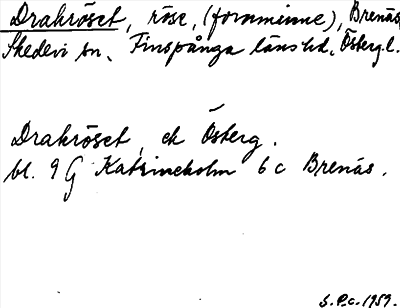 Drakröset, röse, (fornminne), Brenäs
Skedevi sn, Finspånga läns hd, Österg.l.
Drakröset, ek Österg.
bl. 9 G Katrineholm 6 c Brenäs.
S. P:a. 1959.